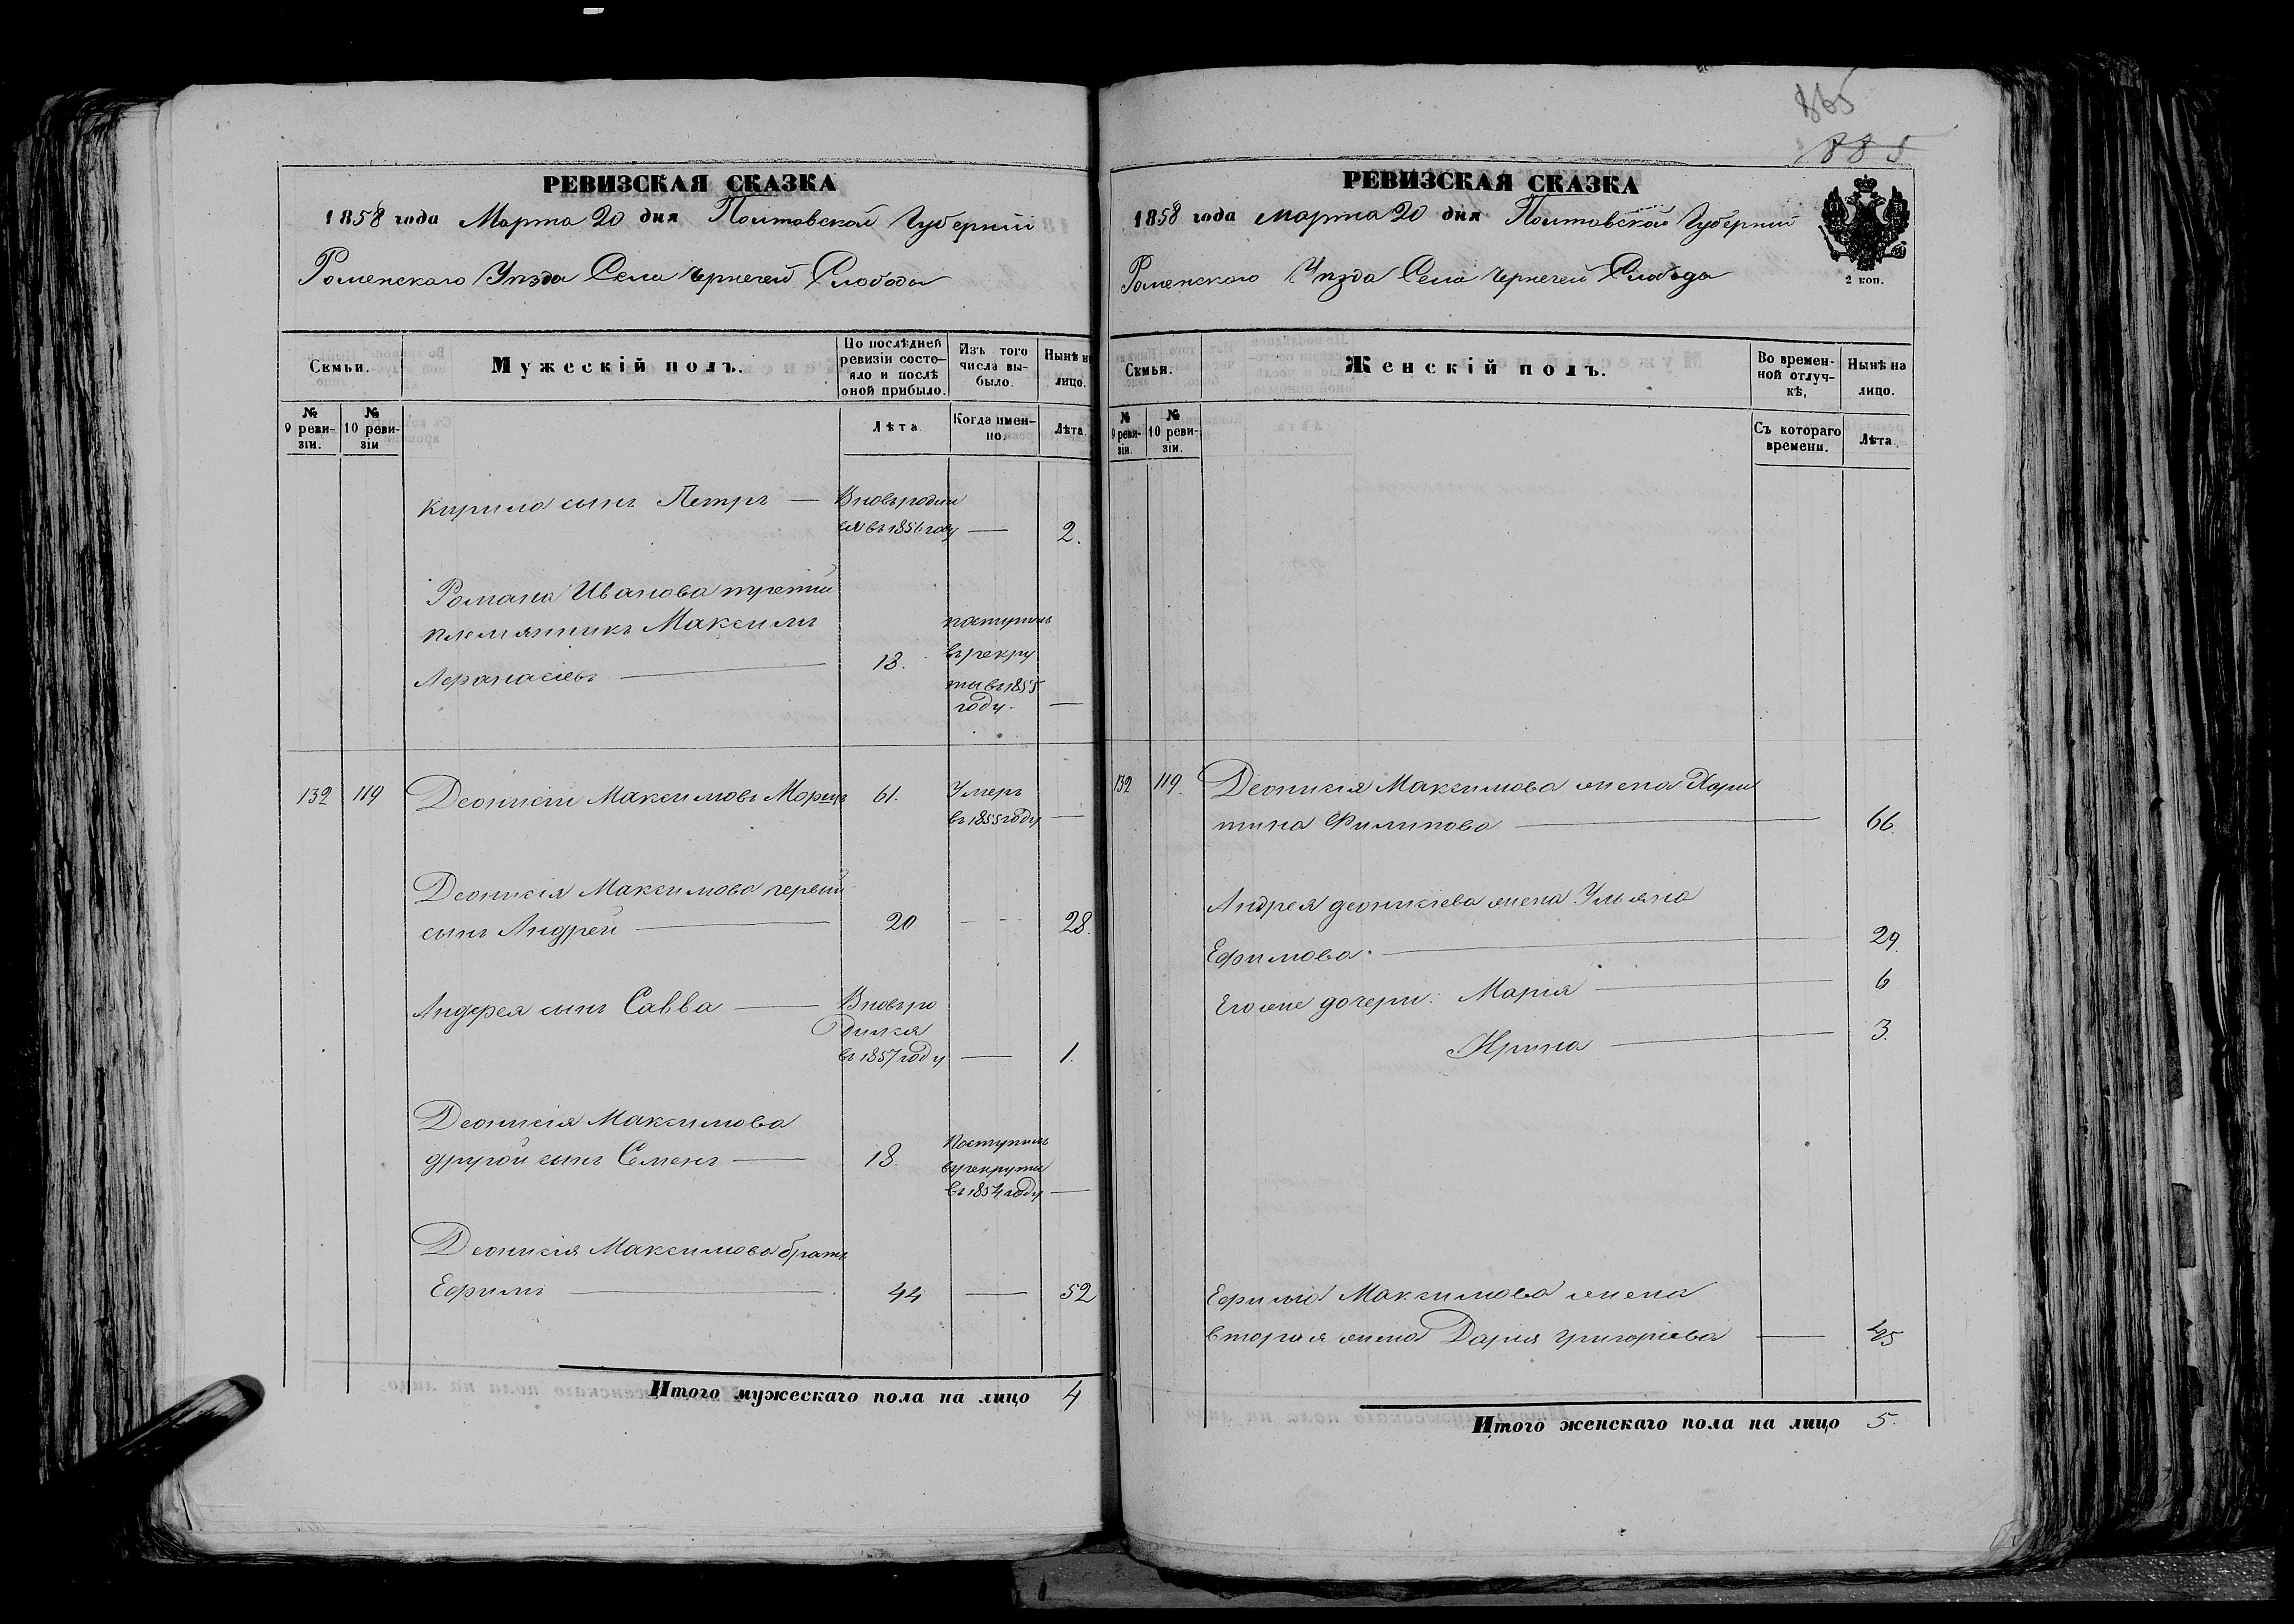 865
885
РЕВИЗСКАЯ СКАЗКА
1858 года Марта 20 дня Полтавской Губерніи
Роменского Уѣзда Села Чернечей Слободы
Семьи.
Мужескій полъ.
По послѣдней ревизіи состояло и послѣ оной прибыло.
Изъ того числа выбыло.
Нынѣ на лицо.
№ 9 ревизіи.
№ 10 ревизіи
Лѣта
Когда именно.
Лѣта.
Кирила сынъ Петръ — Вновь родил
ся въ 1856 году — 2.
Романа Иванова третій
племянникъ Максимъ
Афанасіевъ — 13.
поступилъ
въ рекру
ты въ 1855
году. —
132 119 Деонисій Максимовъ 61. Умеръ
въ 1855 году —
Деонисія Максимова первый
сынъ Андрей — 20 - - - 28.
Андрея сынъ Савва — Вновь ро
дился
въ 1857 году — 1.
Деонисія Максимова
другой сынъ Семенъ — 18.
Поступилъ
въ рекруты
въ 1854 году —
Деонисія Максимова братъ
Ефимъ — 44 — 52
Итого мужескаго пола на лицо 4
РЕВИЗСКАЯ СКАЗКА
1858 года марта 20 дня Полтавской Губерніи
Роменского Уѣзда Села Чернечей Слободы
2 коп.
Семьи.
Женскій полъ.
Во временной отлучкѣ,
Нынѣ на лицо.
№ 9 ревизіи.
№ 10 ревизіи.
Съ котораго времени.
Лѣта.
132 119. Деонисія Максимова жена Хари
тина Филипова — 66.
Андрея деонисіева жена Ульяна
Ефимова. — 29.
Его же дочери: Марія — 6
Ирина — 3.
Ефима Максимова жена
вторая жена Дарія григоріева — 45
Итого женскаго пола на лицо 5.